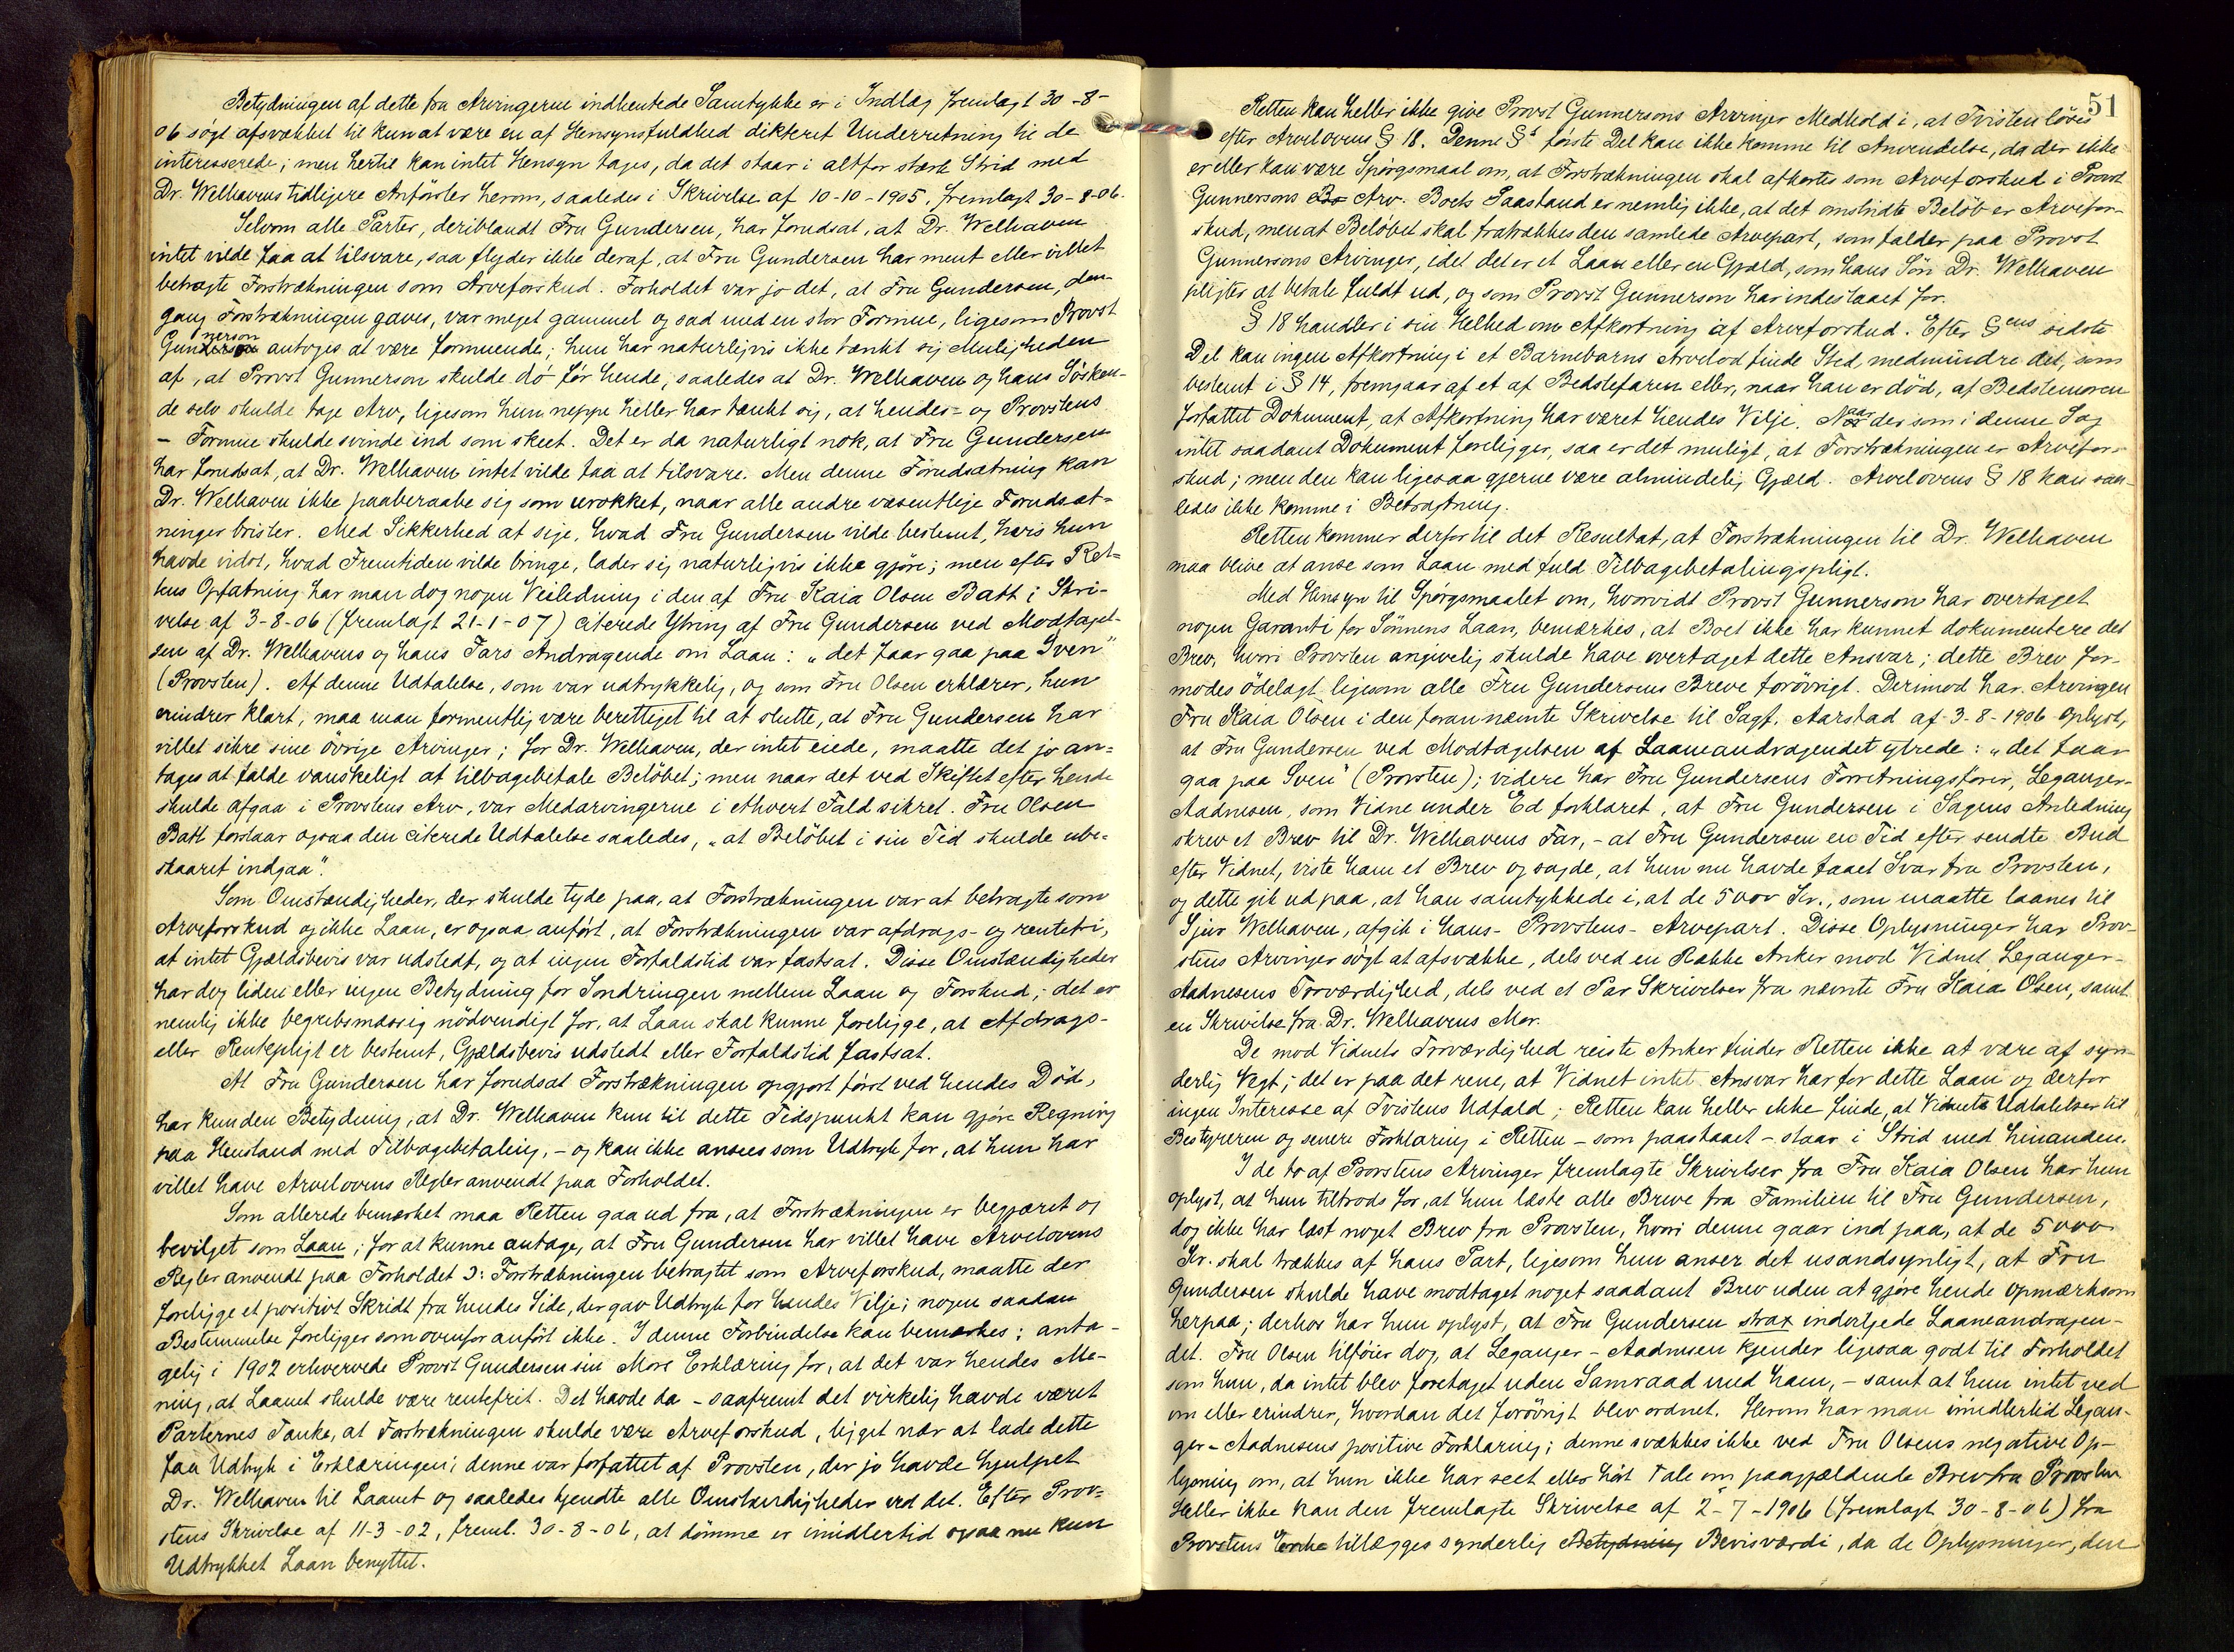 Betydningen af dette fra Arvingerne indhentede Samtykke er i Indlæg fremlagt 30-8-
06 søgt afsvækket til kun at være en af Hensynsfuldhed dikteret Underretning til de
interesserede; men hertil kan intet Hensyn tages, da det staar i altfor stærk Strid med
Dr. Welhavens tidligere Anførsler herom, saaledes i Skrivelse af 10-10-1905, fremlagt 30-8-06.
Selvom alle Parter, deriblandt Fru Gundersen, har forudsat, at Dr. Welhaven
intet vilde faa at tilsvare, saa flyder ikke deraf, at Fru Gundersen har ment eller villet
betragte Forstrækningen som Arveforskud. Forholdet var jo det, at Fru Gundersen, den-
gang Forstrækningen gaves, var meget gammel og sad med en stor Formue, ligesom Provst
Gunnerson antoges at være formuende; hun har naturligvis ikke tænkt sig Muligheden
af, at Provst Gunnerson skulde dø før hende, saaledes at Dr. Welhaven og hans Søsken-
de selv skulde tage Arv, ligesom hun neppe heller har tænkt sig, at hendes- og Provstens
- Formue skulde svinde ind som skeet. Det er da naturligt nok, at Fru Gundersen
har forudsat, at Dr. Welhaven intet vilde faa at tilsvare. Men denne Forudsætning kan
Dr. Welhaven ikke paaberaabe sig som urokket, naar alle andre væsentlige Forudsæt-
ninger brister. Med Sikkerhed at sige, hvad Fru Gundersen vilde bestemt, hvis hun
havde vidst, hvad Fremtiden vilde bringe, lader sig naturligvis ikke gjøre; men efter Ret-
tens Opfatning har man dog nogen Veiledning i den af Fru Kaia Olsen Batt i Skri-
velse af 3-8-06 (fremlagt 21-1-07) citerede Ytring af Fru Gundersen ved Modtagel-
sen af Dr. Welhavens og hans Fars Andragende om Laan: "det faar gaa paa Sven"
(Provsten). Af denne Udtalelse, som var udtrykkelig, og som Fru Olsen erklærer, hun
erindrer klart, maa man formentlig være berettiget til at slutte, at Fru Gundersen har
villet sikre sine øvrige Arvinger; for Dr. Welhaven, der intet eiede, maatte det jo an-
tages at falde vanskeligt at tilbagebetale Beløbet; men naar det ved Skiftet efter hende
skulde afgaa i Provstens Arv, var Medarvingerne i ethvert Fald sikret. Fru Olsen
Batt forstaar ogsaa den citerede Udtalelse saaledes, "at Beløbet i sin Tid skulde ube-
skaaret indgaa".
Som Omstændigheder, der skulde tyde paa, at Forstrækningen var at betragte som
Arveforskud og ikke Laan, er ogsaa anført, at Forstrækningen var afdrags- og rentefri,
at intet Gjældsbevis var udstedt, og at ingen Forfaldstid var fastsat. Disse Omstændigheder
har dog liden eller ingen Betydning for Sondringen mellem Laan og Forskud; det er
nemlig ikke begrebsmæssig nødvendigt for, at Laan skal kunne foreligge, at Afdrags-
eller Rentepligt er bestemt, Gjældsbevis udstedt eller Forfaldstid fastsat.
At Fru Gundersen har forudsat Forstrækningen opgjort først ved hendes Død,
har kun den Betydning, at Dr. Welhaven kun til dette Tidspunkt kan gjøre Regning
paa Henstand med Tilbagebetaling, - og kan ikke ansees som Udtryk for, at hun har
villet have Arvelovens Regler anvendt paa Forholdet.
Som allerede bemærket maa Retten gaa ud fra, at Forstrækningen er begjæret og
bevilget som Laan; for at kunne antage, at Fru Gundersen har villet have Arvelovens
Regler anvendt paa Forholdet ɔ: Forstrækningen betragtet som Arveforskud, maatte der
foreligge et positivt Skridt fra hendes Side, der gav Udtryk for hendes Vilje; nogen saadan
Bestemmelse foreligger som ovenfor anført ikke. I denne Forbindelse kan bemærkes: anta-
gelig i 1902 erhvervede Provst Gundersen sin Mors Erklæring for, at det var hendes Me-
ning, at Laanet skulde være rentefrit. Det havde da - saafremt det virkelig havde været
Parternes Tanke, at Forstrækningen skulde være Arveforskud, ligget nær at lade dette
faa Udtryk i Erklæringen; denne var forfattet af Provsten, der jo havde hjulpet
Dr. Welhaven til Laanet og saaledes kjendte alle Omstændigheder ved det. Efter Prov-
stens Skrivelse af 11-3-02, freml. 30-8-06, at dømme er imidlertid ogsaa nu kun
Udtrykket Laan benyttet.
51
Retten kan heller ikke give Provst Gunnersons Arvinger Medhold i, at Tvisten løses
efter Arvelovens § 18. Denne §s første Del kan ikke komme til Anvendelse, da der ikke
er eller kan være Spørgsmaal om, at Forstrækningen skal afkortes som Arveforskud i Provst
Gunnersons Bo Arv. Boets Paastand er nemlig ikke, at det omstridte Beløb er Arvefor-
skud, men at Beløbet skal fratrækkes den samlede Arvepart, som falder paa Provst
Gunnersons Arvinger, idet det er et Laan eller en Gjæld, som hans Søn Dr. Welhaven
pligter at betale fuldt ud, og som Provst Gunnerson har indestaaet for.
§ 18 handler i sin Helhed om Afkortning af Arveforskud. Efter §ens sidste
Del kan ingen Afkortning i et Barnebarns Arvelod finde Sted, medmindre det, som
bestemt i § 14, fremgaar af et af Bedstefaren eller, naar han er død, af Bedstemoren
forfattet Dokument, at Afkortning har været hendes Vilje. Naar der som i denne Sag
intet saadant Dokument foreligger, saa er det muligt, at Forstrækningen er Arvefor-
skud; men den kan ligesaa gjerne være almindelig Gjæld. Arvelovens § 18 kan saa-
ledes ikke komme i Betragtning.
Retten kommer derfor til det Resultat, at Forstrækningen til Dr. Welhaven
maa blive at anse som Laan med fuld Tilbagebetalingspligt.
Med Hensyn til Spørgsmaalet om, hvorvidt Provst Gunnerson har overtaget
nogen Garanti for Sønnens Laan, bemærkes, at Boet ikke har kunnet dokumentere det
Brev, hvori Provsten angivelig skulde have overtaget dette Ansvar; dette Brev for-
modes ødelagt ligesom alle Fru Gundersens Breve forøvrigt. Derimod har Arvingen
Fru Kaia Olsen i den forannævnte Skrivelse til Sagf. Aarstad af 3-8-1906 oplyst,
at Fru Gundersen ved Modtagelsen af Laaneandragendet ytrede: "det faar
gaa paa Sven" (Provsten); videre har Fru Gundersens Forretningsfører, Leganger-
Aadnesen, som Vidne under Ed forklaret, at Fru Gundersen i Sagens Anledning
skrev et Brev til Dr. Welhavens Far, - at Fru Gundersen en Tid efter sendte Bud
efter Vidnet, viste ham et Brev og sagde, at hun nu havde faaet Svar fra Provsten,
og dette gik ud paa, at han samtykkede i, at de 5000 Kr., som maatte laanes til
Sjur Welhaven, afgik i hans- Provstens- Arvepart. Disse Oplysninger har Prov-
stens Arvinger søgt at afsvække, dels ved en Række Anker mod Vidnet Leganger-
Aadnesens Troværdighed, dels ved et Par Skrivelser fra nævnte Fru Kaia Olsen, samt
en Skrivelse fra Dr. Welhavens Mor.
De mod Vidnets Troværdighed reiste Anker finder Retten ikke at være af syn-
derlig Vegt; det er paa det rene, at Vidnet intet Ansvar har for dette Laan og derfor
ingen Interesse af Tvistens Udfald; Retten kan heller ikke finde, at Vidnets Udtalelser til
Bestyreren og senere Forklaring i Retten - som paastaaet - staar i Strid med hinanden.
I de to af Provstens Arvinger fremlagte Skrivelser fra Fru Kaia Olsen har hun
oplyst, at hun tiltrods for, at hun læste alle Breve fra Familien til Fru Gundersen,
dog ikke har læst noget Brev fra Provsten, hvori denne gaar ind paa, at de 5000
Kr. skal trækkes af hans Part, ligesom hun anser det usandsynligt, at Fru
Gundersen skulde have modtaget noget saadant Brev uden at gjøre hende opmærksom
herpaa; derhos har hun oplyst, at Fru Gundersen strax indvilgede Laaneandragen-
det. Fru Olsen tilføier dog, at Leganger-Aadnesen kjender ligesaa godt til Forholdet
som hun, da intet blev foretaget uden Samraad med ham, - samt at hun intet ved
om eller erindrer, hvordan det forøvrigt blev ordnet. Herom har man imidlertid Legan-
ger-Aadnesens positive Forklaring; denne svækkes ikke ved Fru Olsens negative Op-
lysning om, at hun ikke har seet eller hørt Tale om paagjældende Brev fra Provsten
Heller ikke kan den fremlagte Skrivelse af 2-7-1906 (fremlagt 30-8-06) fra
Provstens Enke tillægges synderlig Betydning Bevisværdi, da de Oplysninger, den